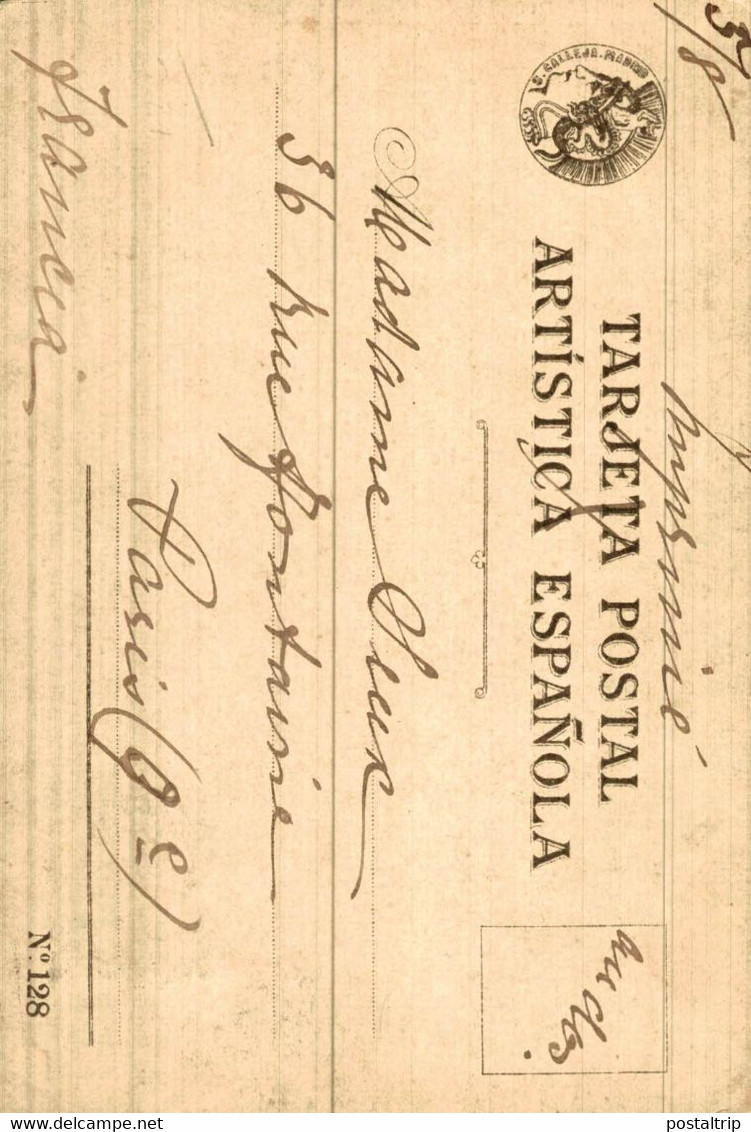 5/8
Imprimé
S. CALLEJA. MADRID
TARJETA POSTAL
ARTÍSTICA ESPAÑOLA
Madame
36 Rue Fontaine
Paris (9e)
Francia
Nº. 128
postaltrip
delcampe.net